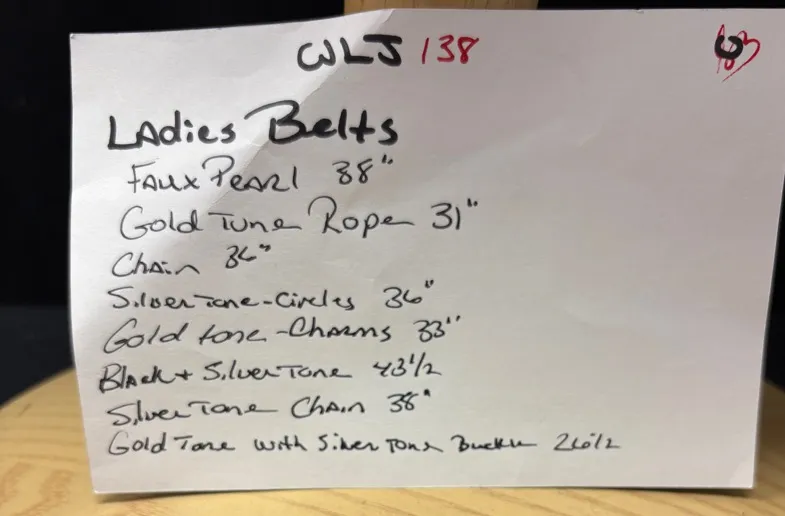 WLJ 138
Ladies Belts
Faux Pearl 38"
Gold Tone Rope 31"
Chain 36"
Silver Tone - Circles 36"
Gold tone - Charms 33"
Black + Silver Tone 43 1/2
Silver Tone Chain 38"
Gold Tone with Silver Tone Buckle 26 1/2